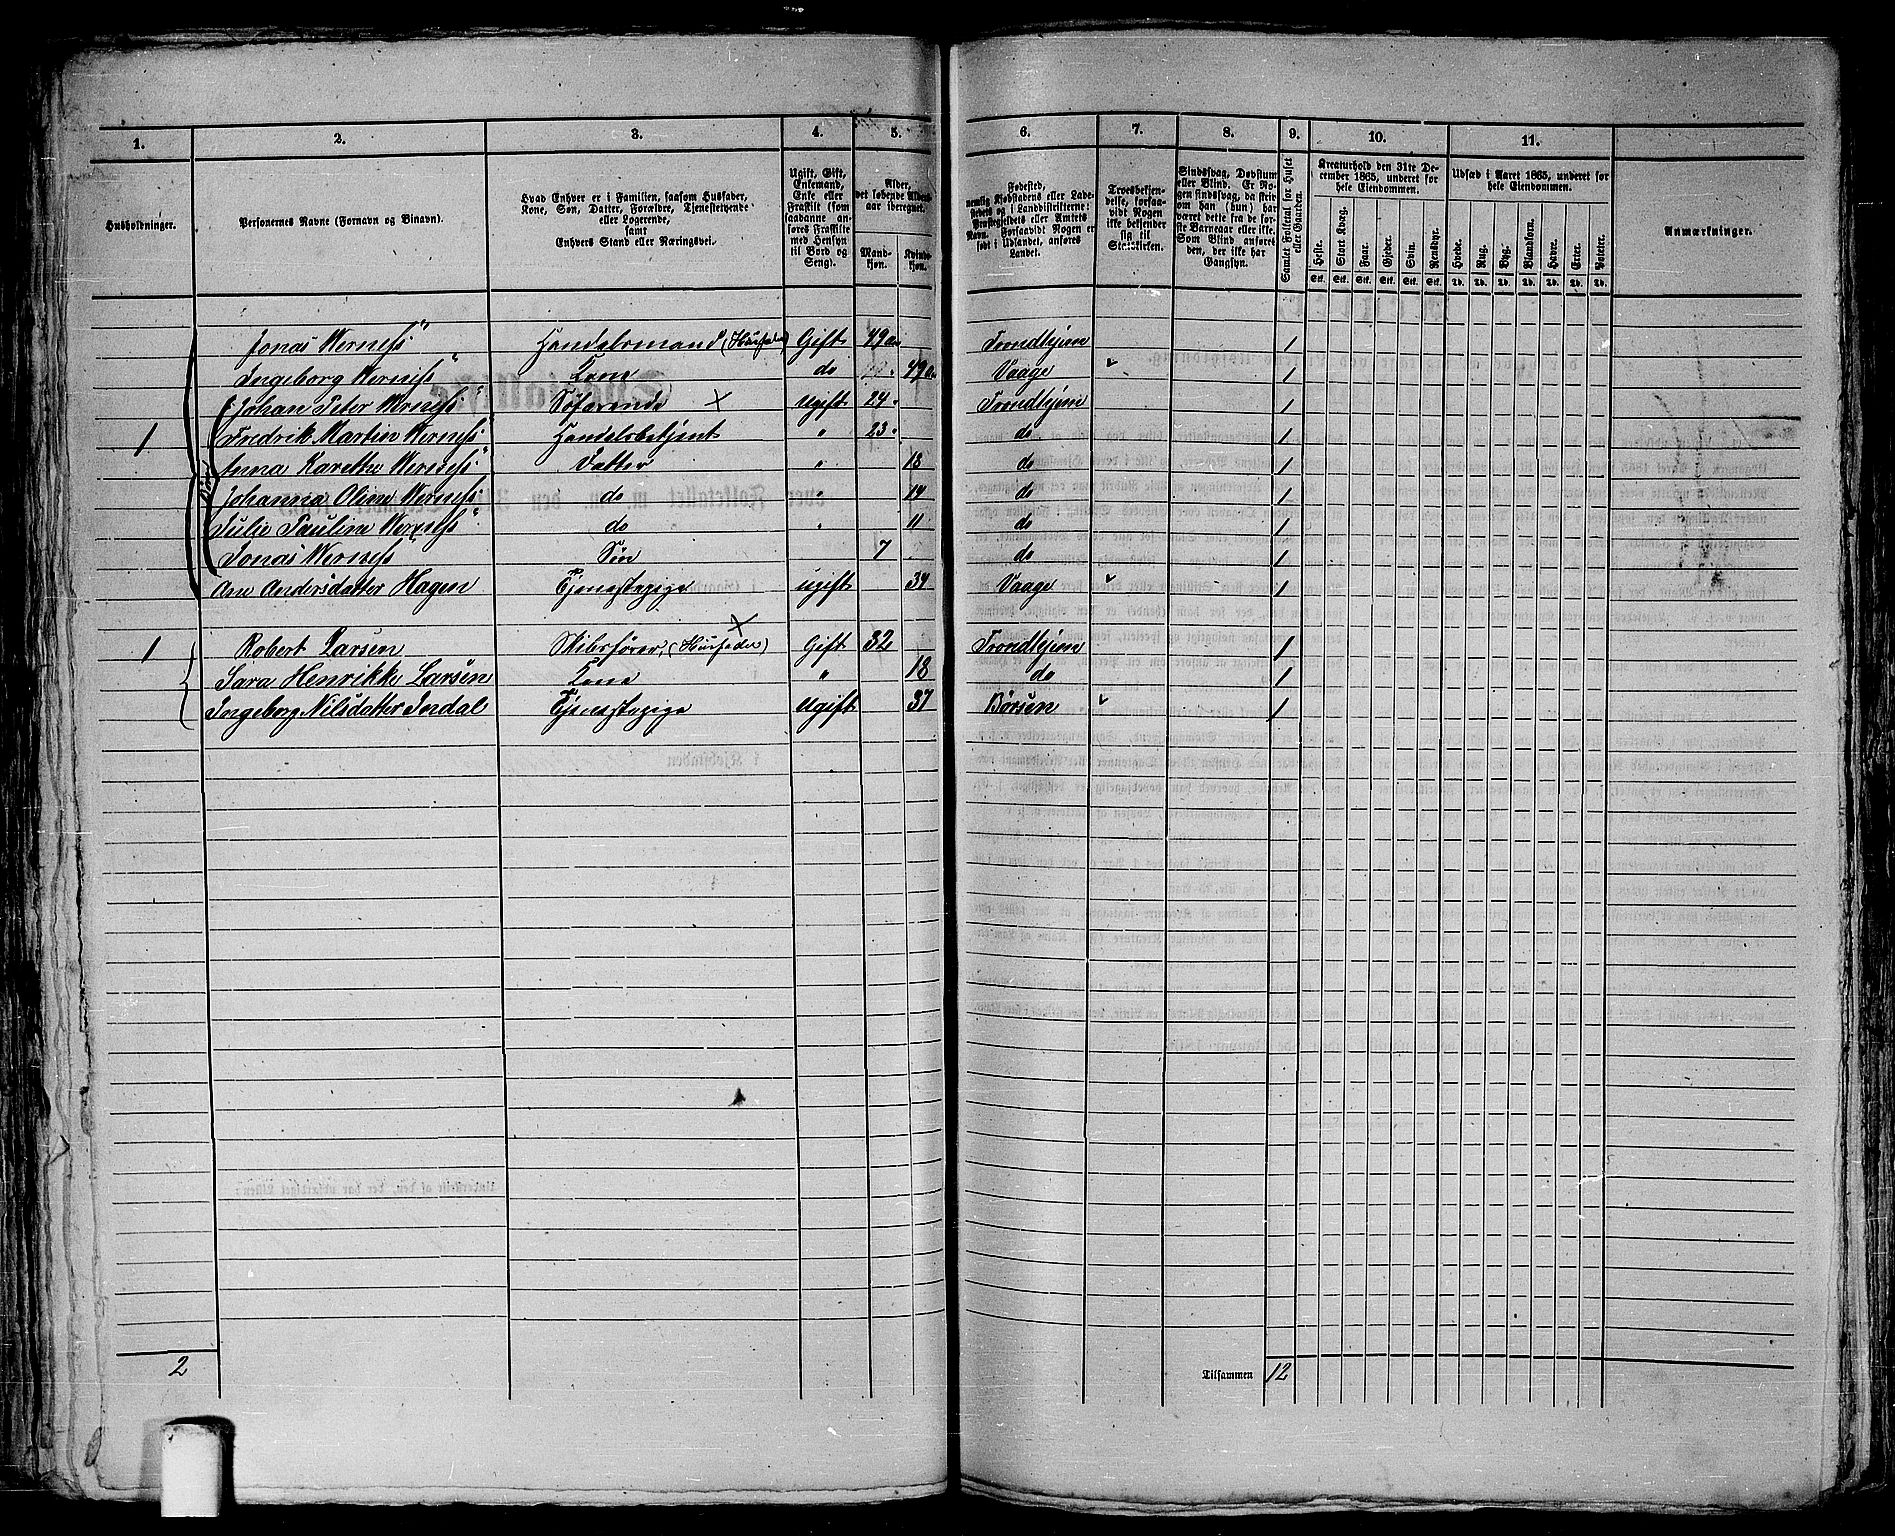 1. 2. 3. 4. 5. 6. 7. 8. 9. 10. 11.
Husholdninger.
Personernes Navne (Fornavn og Binavn).
Hvad Enhver er i Familien, saasom Husfader,
Kone, Søn, Datter, Forældre, Tjenestetyende
eller Logerende,
samt
Enhvers Stand eller Næringsvei.
Ugift, Gift,
Enkemand,
Enke eller
Fraskilt (som
saadanne an-
føres Fraskilte
med Hensyn
til Bord og
Seng).
Alder,
det løbende Alders-
aar iberegnet.
Mand-
kjøn.
Kvind-
kjøn.
Fødested,
nemlig Kjøbstadens eller Lade-
stedets og i Landdistrikterne:
Præstegjeldets eller Amtets
Navn. Forsaavidt Nogen er
født i Udlandet, anføres
Landet.
Troesbekjen-
delse, forsaa-
vidt Nogen
ikke bekjender
sig til
Statskirken.
Sindssvag, Døvstum
eller Blind. Er No-
gen sindssvag, da skriv
om han (hun) har
været dette fra de før-
ste Barneaar eller ikke.
Som Blind anføres
den, der ikke har
Gangsyn.
Samlet Folketal for Huset
eller Gaarden.
Kreaturhold den 31te De-
cember 1865, underet for
hele Eiendommen.
Heste. Stort Kvæg. Faar. Gjeder. Svin. Rensdyr.
Stk. Stk. Stk. Stk. Stk. Stk.
Udsæd i Aaret 1865, underet for
hele Eiendommen.
Hvede. Rug. Byg. Blandkorn. Havre. Erter. Poteter.
Td. Td. Td. Td. Td. Td. Td.
Anmærkninger.
Jonas Werness Handelsmand (Husfader) Gift 49 Trondhjem 1
Ingeborg Werness Kone do 49 Vaage 1
Johan Peter Werness Søfarende × Ugift 24 Trondhjem 1
1 Fredrik Martin Werness Handelsbetjent " 23 do 1
Anna Karetha Werness Datter " 18 do 1
Johanna Oline Werness do " 14 do 1
Julie Pauline Werness do " 11 do 1
Jonas Werness Søn 7 do 1
Ane Andersdatter Hagen Tjenestepige ugift 34 Vaage 1
1 Robert Larsen Skibsfører, (Husfader) × Gift 32 Trondhjem 1
Sara Henrikke Larsen Kone " 18 do 1
Ingeborg Nilsdatter Jordal Tjenestepige Ugift 37 Børsen 1
2 Tilsammen 12